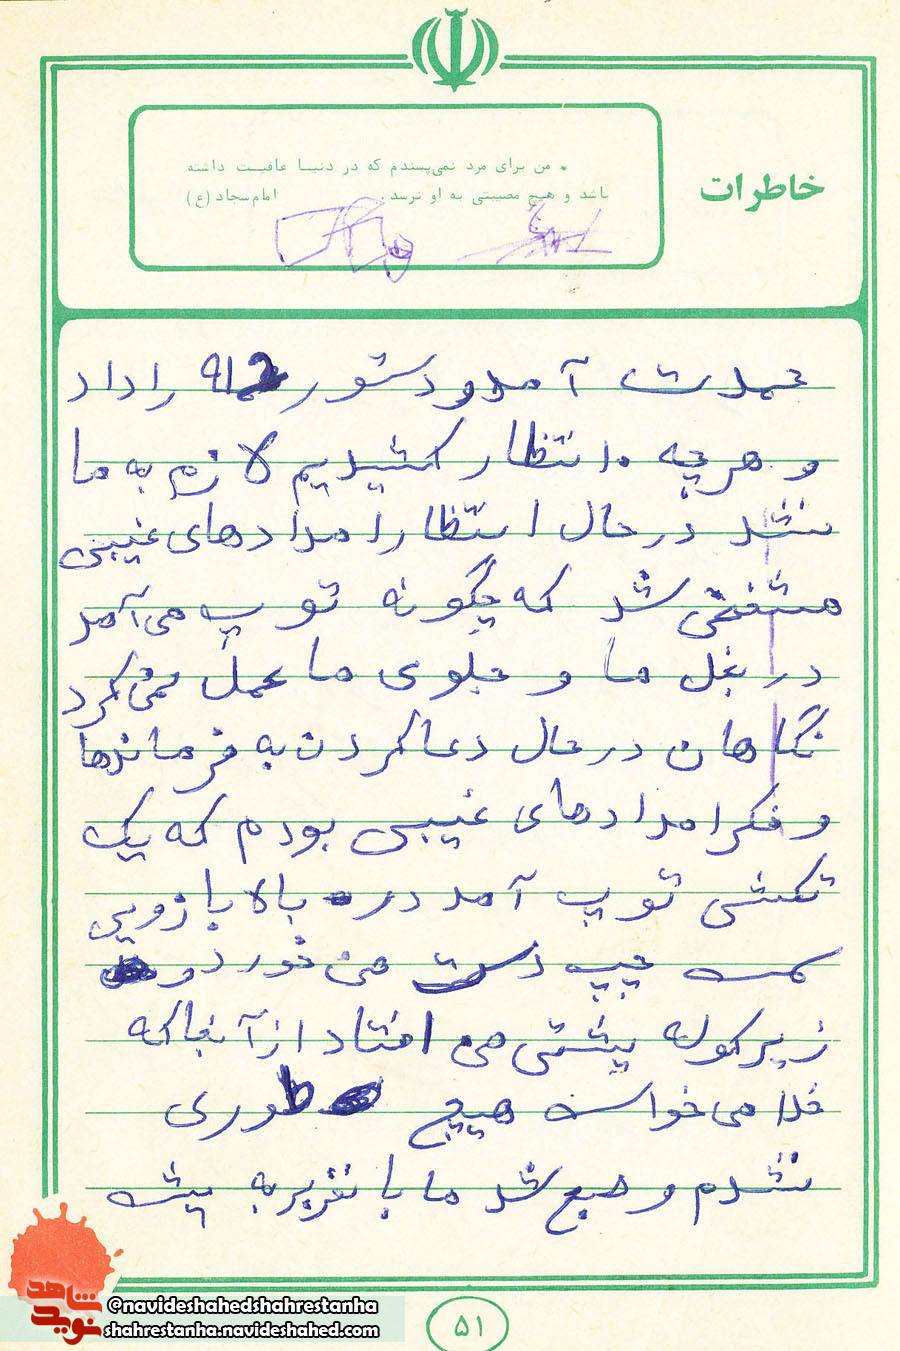 خاطرات
* من برای مرد نمی‌پسندم که در دنیا عافیت داشته
باشد و هیچ مصیبتی به او نرسد. امام سجاد (ع)
آمد و دستور را داد
و هرچه انتظار کشیدیم لازم به ما
نشد در حال انتظار امدادهای غیبی
شد که چگونه توپ می‌آمد
در بغل ما و جلوی ما عمل نمی‌کرد
ناگاهان در حال دعا کردن به فرماندها
و فکر امدادهای غیبی بودم که یک
ترکشی توپ آمد در بالا بازویی
سمت چپ دست می‌خورد و
زیر کوله پشتی می افتاد از آنجا که
خدا می‌خواست هیچ طوری
نشدم و صبح شد ما با نفربر به پشت
۵۱
شاهد
نوید
@navideshahedshahrestanha
shahrestanha.navideshahed.com